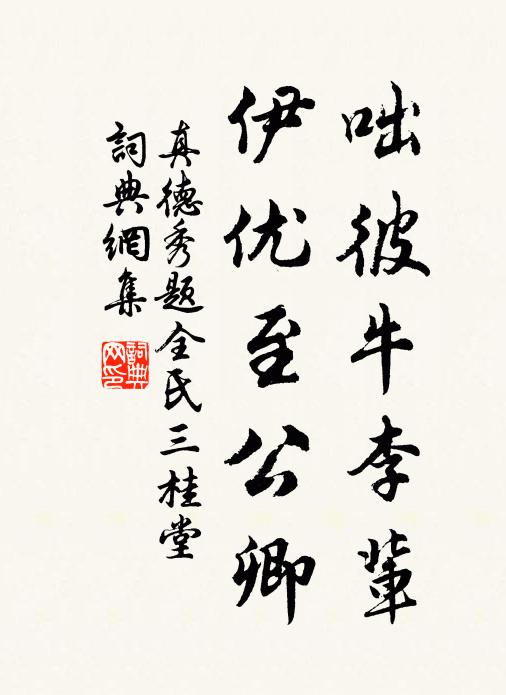 咄彼牛李輩
伊优至公卿
真德秀題全氏三桂堂
詞典網集
詞典网印